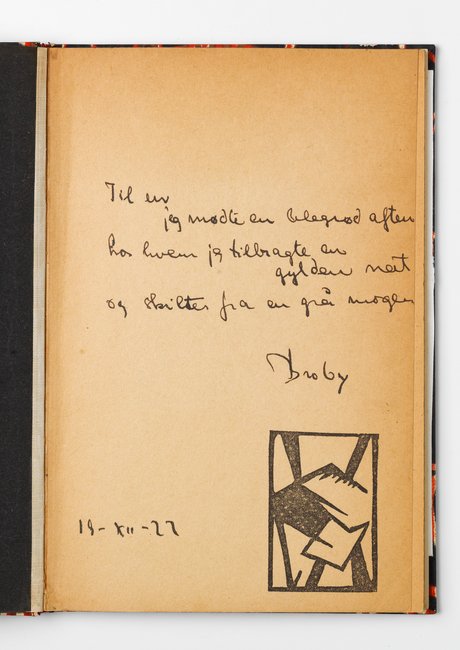 Til en
jeg mødte en blegrød aften
hos hvem jeg tilbragte en
gylden nat
og skiltes fra en grå mogen
Broby
19-XII-22